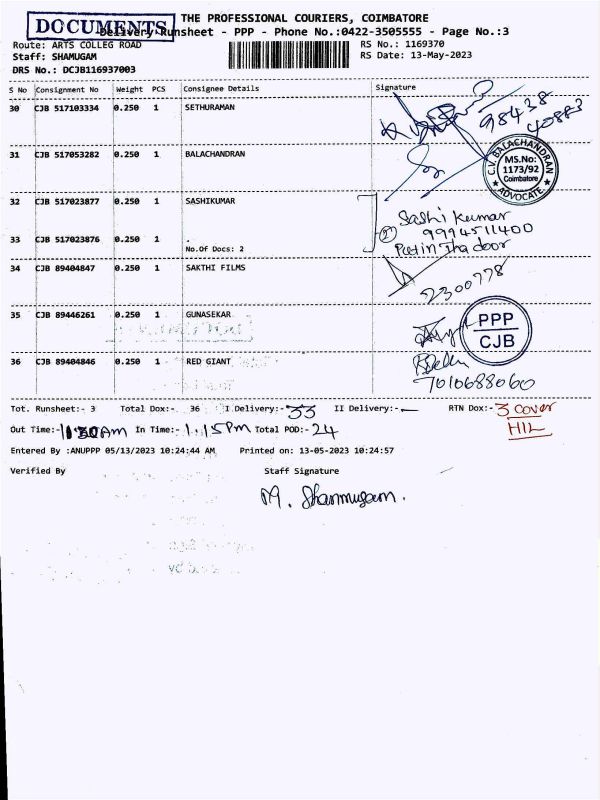 THE PROFESSIONAL COURIERS, COIMBATORE
DOCUMENTS
Delivery Runsheet - PPP - Phone No.:0422-3505555 - Page No.:3
Route: ARTS COLLEG ROAD RS No.: 1169370
Staff: SHAMUGAM RS Date: 13-May-2023
DRS No.: DCJB116937003
S No Consignment No Weight PCS Consignee Details Signature
30 CJB 517103334 0.250 1 SETHURAMAN
98438
40883
31 CJB 517053282 0.250 1 BALACHANDRAN
C.V. BALACHANDRAN
MS.No:
1173/92
Coimbatore
ADVOCATE
32 CJB 517023877 0.250 1 SASHIKUMAR
Sashi Kumar
2 9994511400
33 CJB 517023876 0.250 1 .
No.Of Docs: 2
34 CJB 89404847 0.250 1 SAKTHI FILMS
2300778
35 CJB 89446261 0.250 1 GUNASEKAR
PPP
CJB
36 CJB 89404846 0.250 1 RED GIANT
7010688060
Tot. Runsheet:- 3 Total Dox:- 36 I Delivery:- 33 II Delivery:- RTN Dox:- 3 cover
HIL
Out Time:- In Time:- 1.15PM Total POD:- 24
Entered By :ANUPPP 05/13/2023 10:24:44 AM Printed on: 13-05-2023 10:24:57
Verified By Staff Signature
M. Shanmugam.